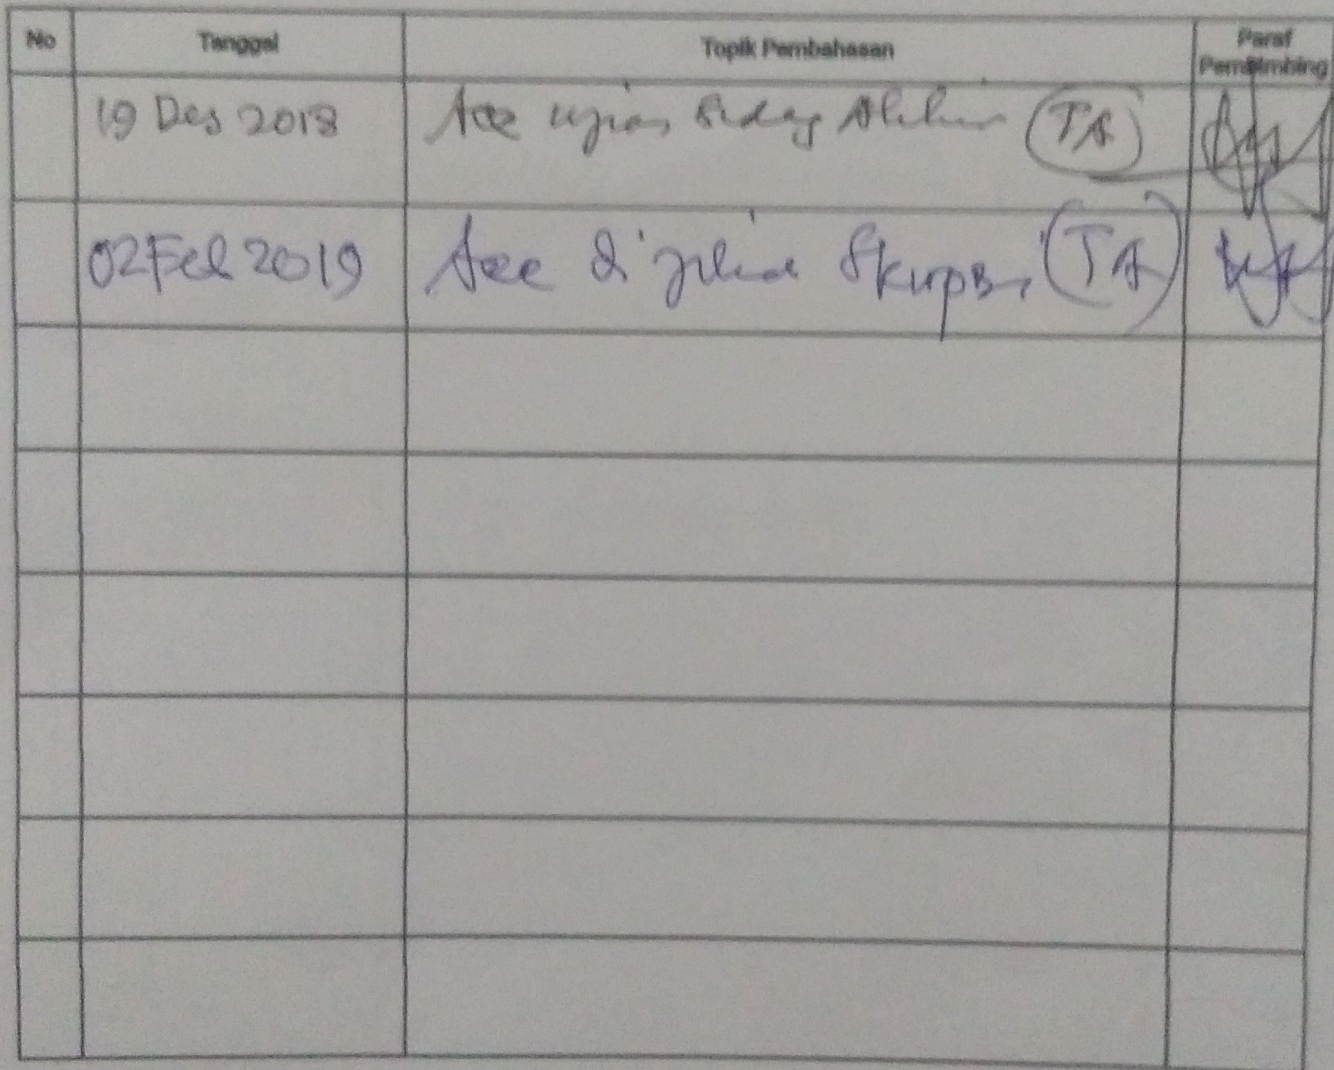 No Tanggal Topik Pembahasan Paraf Pembimbing
19 Des 2018 Acc ujian Sidang Akhir (TA)
02 Feb 2019 Acc di jilid Skripsi (TA)